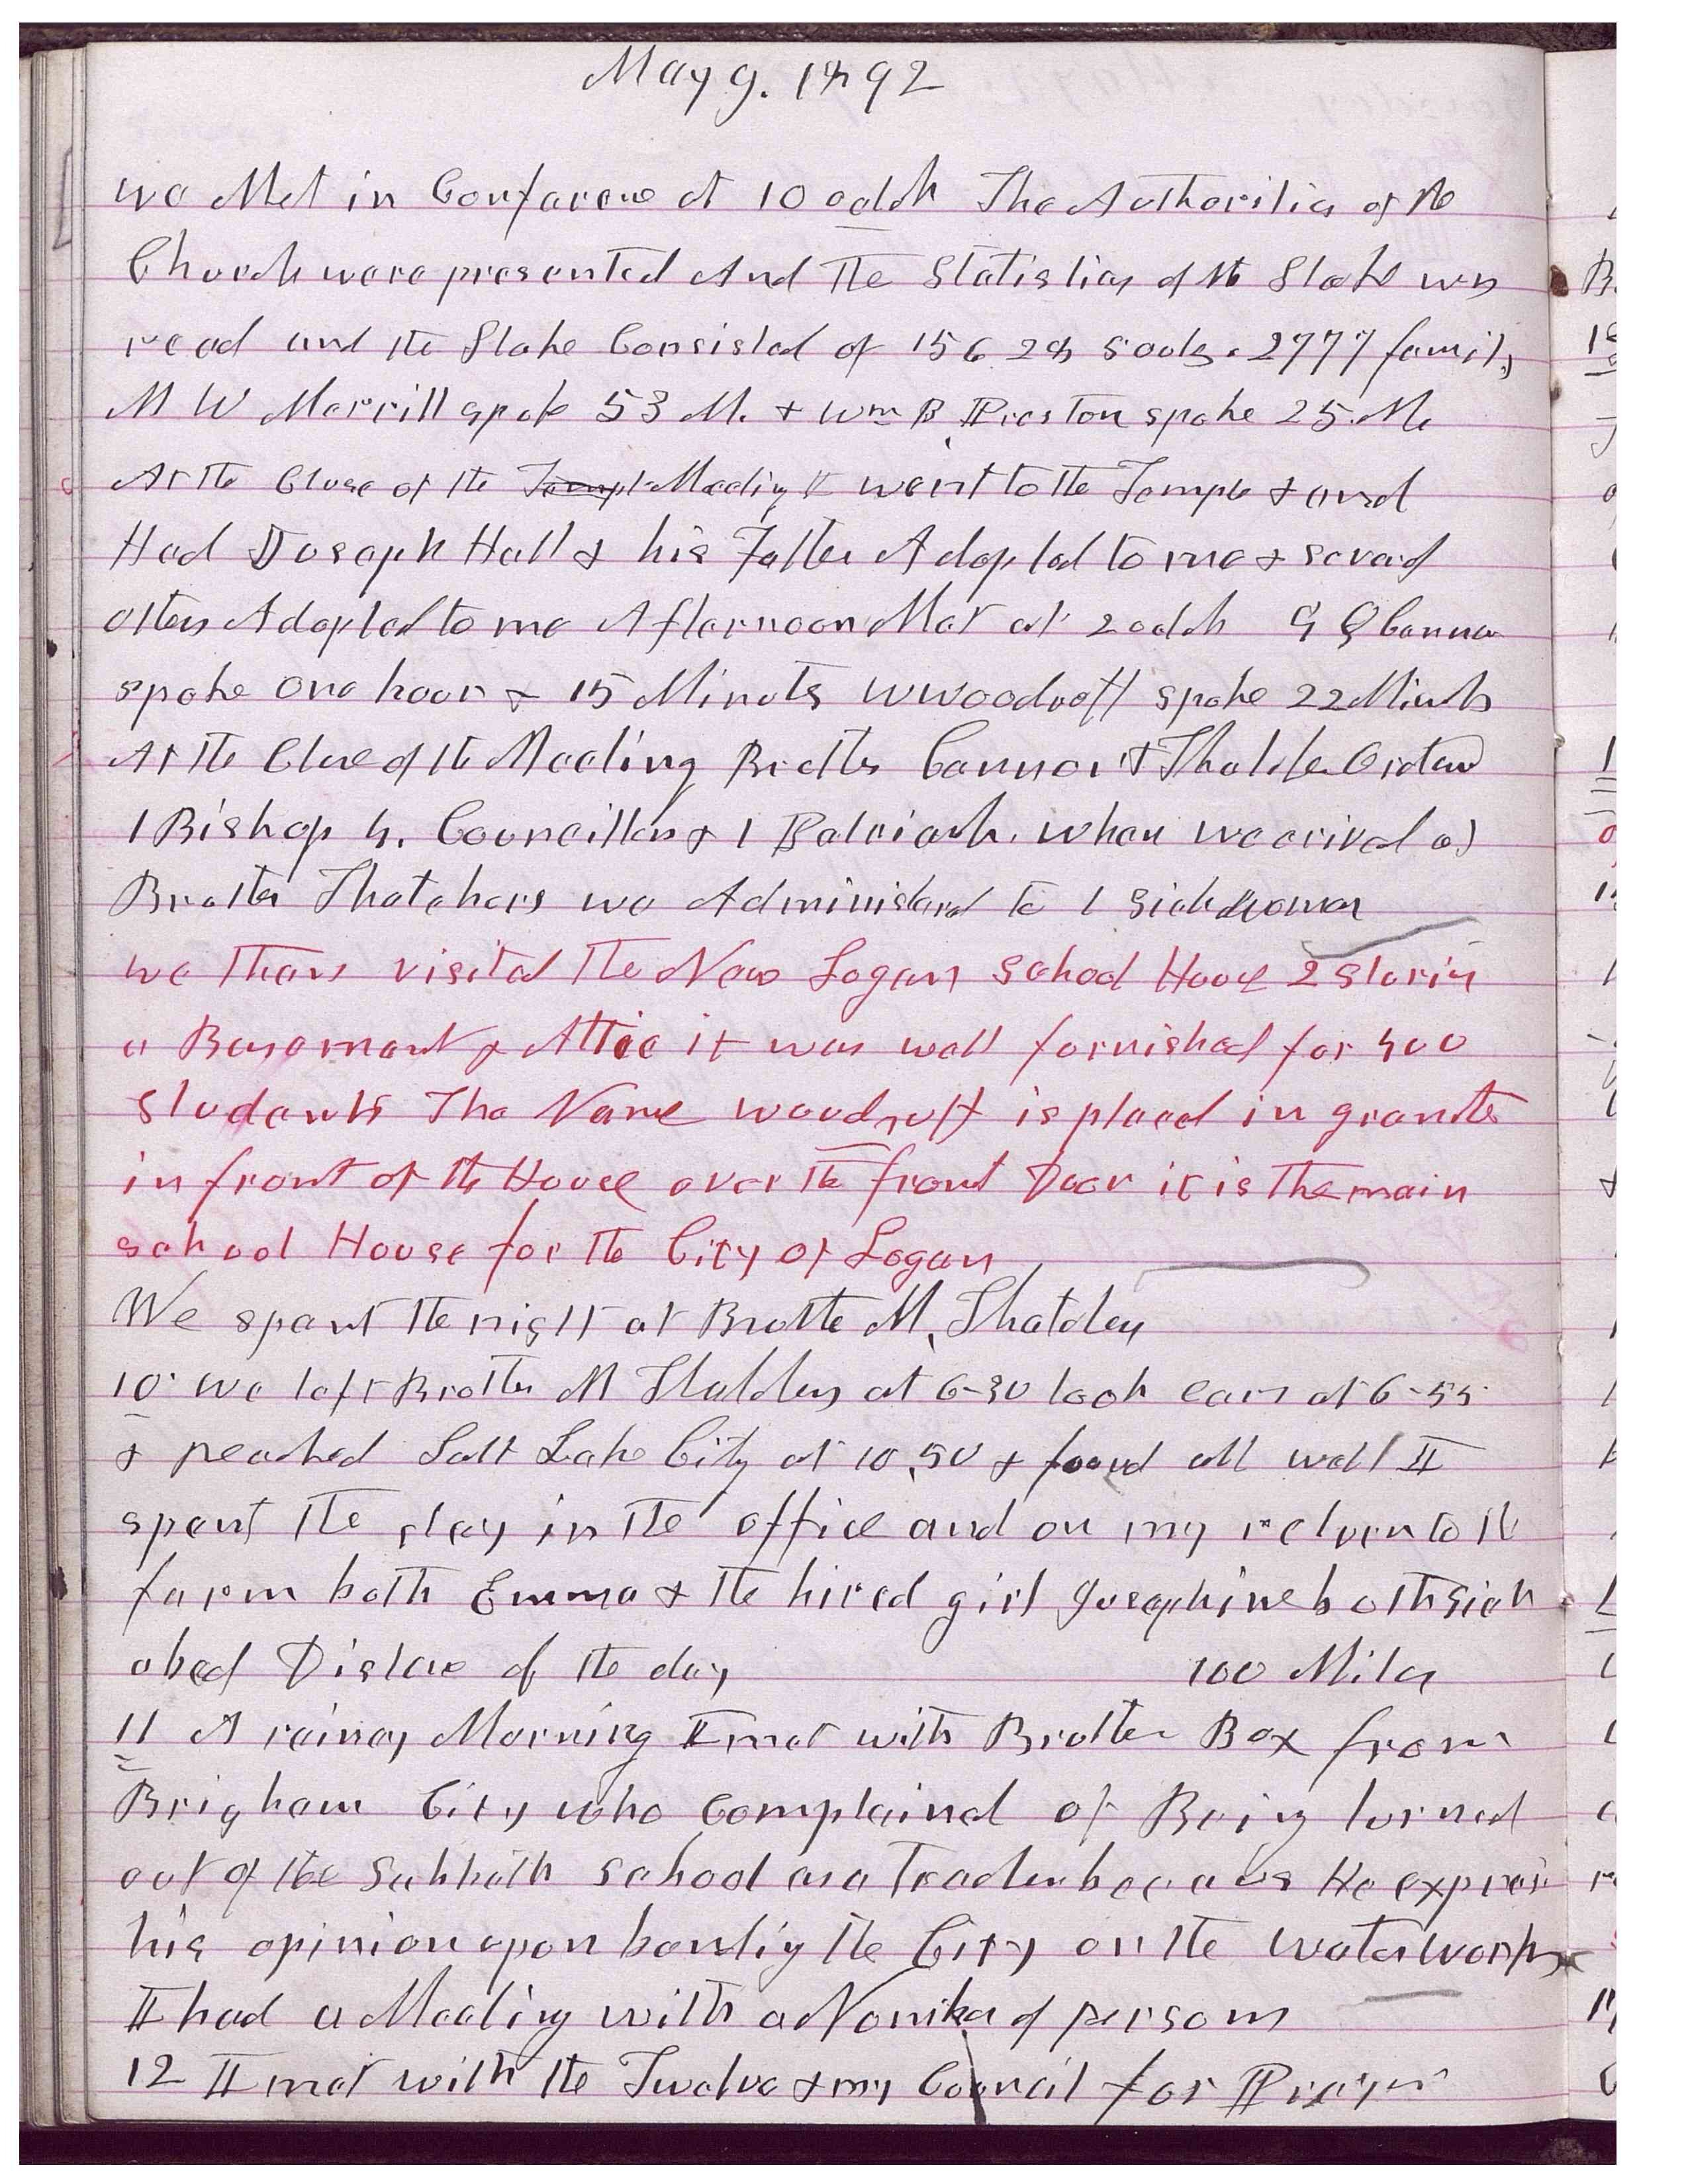 May 9. 1892
we Met in Conferene at 10 oclok The Authorities of the
Church were presented And the Statistics of the Stake was
read and the Stake Consisted of 15628 Souls. 2777 familes
M W Merrill spok 53 M. & Wm B Preston spoke 25. M
At the Close of the Templ Meeting I went to the Temple & and
Had Joseph Hall & his Father Adopted to me & several
others Adopted to me Afternoon Met at 2 oclok G Q Cannon
spoke One hour & 15 Minuts W Woodruff spoke 22 Minuts
At the Close of the Meeting Brothers Cannon & Thatcher Ordained
1 Bishop 4. Councillors & 1 Patriarch. When we arived at
Brother Thatchers we Administered to 1 Sick woman
we then visited the New Logan School House 2 Stories
a Basement & Attic it was well furnished for 400
Students The Name Woodruff is placed in granite
in front of the House over the front Door it is the main
school House for the City of Logan
We spent the night at Brother M, Thatcher
10 we left Brother M Thatchers at 6-30 took cars at 6-55
& reached Salt Lake City at 10,50 & found all well I
spent the day in the office and on my return to the
farm both Emma & the hired girl Josephine both sick
abed Distace of the day 100 Miles
11 A rainey Morning I met with Brother Box from
Brigham City who complained of Being turned
out of the Sabbath School as a Teacher becaus He expres
his opinion upon bonding the City on the waterworks
I had a Meeting with a Nomber of persons
12 I met with the Twelve & my Council for Prayer